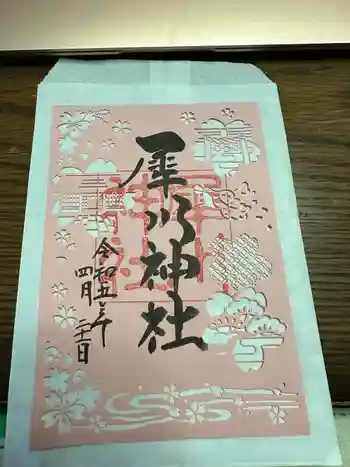 犀川神社
令和五年
四月二十一日